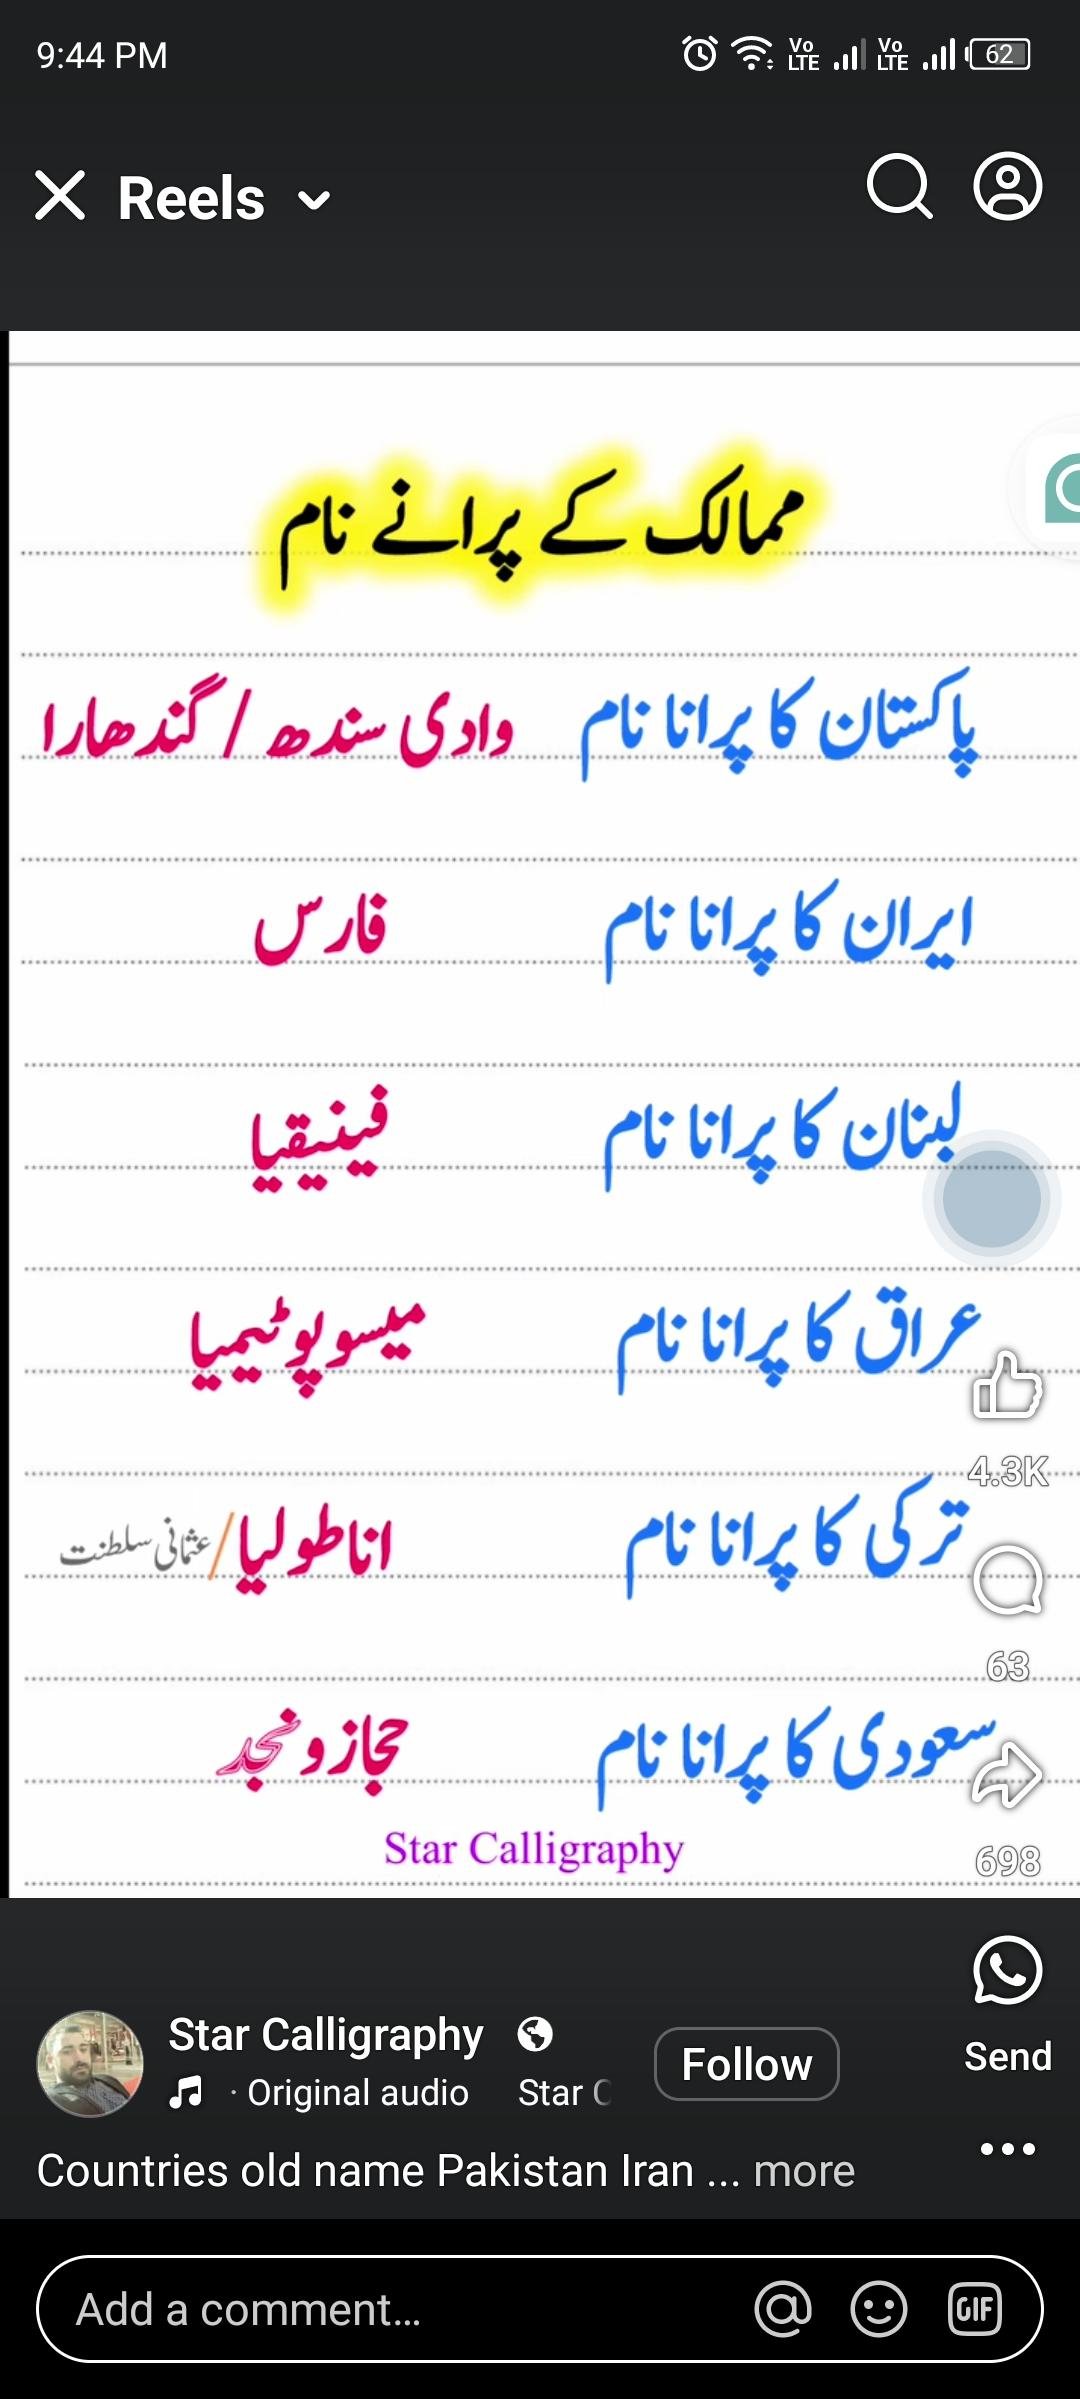 9:44 PM
Vo LTE Vo LTE 62
Reels
ممالک کے پرانے نام
پاکستان کا پرانا نام وادی سندھ / گندھارا
ایران کا پرانا نام فارس
لبنان کا پرانا نام فینیقیا
عراق کا پرانا نام میسوپوٹیمیا
ترکی کا پرانا نام اناطولیا/عثمانی سلطنت
سعودی کا پرانا نام حجاز و نجد
Star Calligraphy
4.3K
63
698
Send
Star Calligraphy
· Original audio Star C
Follow
Countries old name Pakistan Iran ... more
Add a comment...
GIF